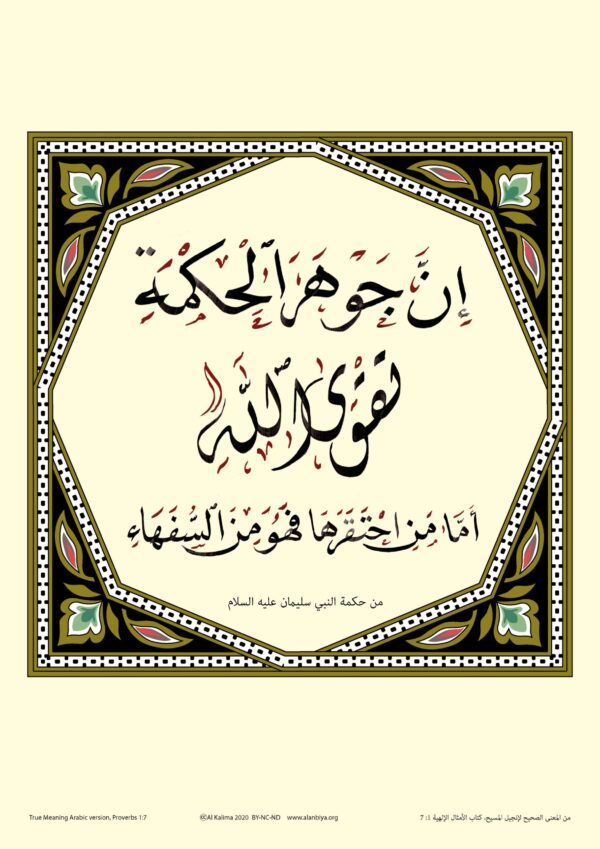 إِنَّ جَوْهَرَ ٱلْحِكْمَةِ
تَقْوَى ٱللَّهِ
أَمَّا مَنِ احْتَقَرَهَا فَهُوَ مِنَ ٱلسُّفَهَاءِ
من حكمة النبي سليمان عليه السلام
True Meaning Arabic version, Proverbs 1:7
Al Kalima 2020 BY-NC-ND www.alanbiya.org
من المعنى الصحيح لإنجيل المسيح، كتاب الأمثال الإلهية ١: 7